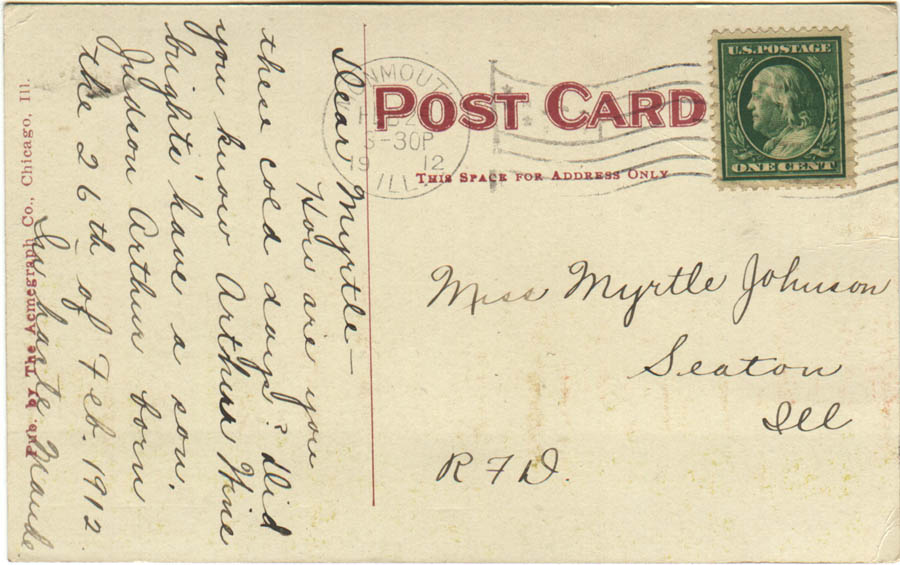 Dear Myrtle—
How are you
these cold days? Did
you know Arthur Wine
brights' have a son.
Judson Arthur born
the 26th of Feb. 1912.
In haste Maude
Pub. by The Acmegraph Co., Chicago, Ill.
POST CARD
THIS SPACE FOR ADDRESS ONLY
3-30P
19 12
ILL.
U.S. POSTAGE
ONE CENT
Miss Myrtle Johnson
Seaton
Ill
R F D.